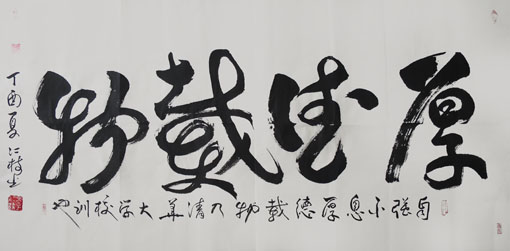 厚德载物
自强不息厚德载物乃清华大学校训也
丁酉夏